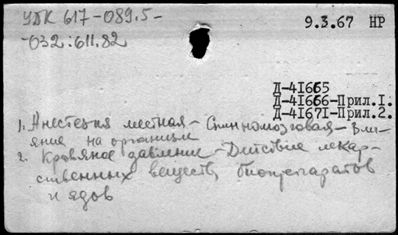 УДК 617-089.5-
-032:611.82
9.3.67 НР
Д-41665
Д-41666-Прил.1.
Д-41671-Прил.2.
1. Анестезия местная - Спинномозговая - Вли-
яние на организм
2. Кровяное давление - Действие лекар-
ственных веществ, биопрепаратов
и ядов